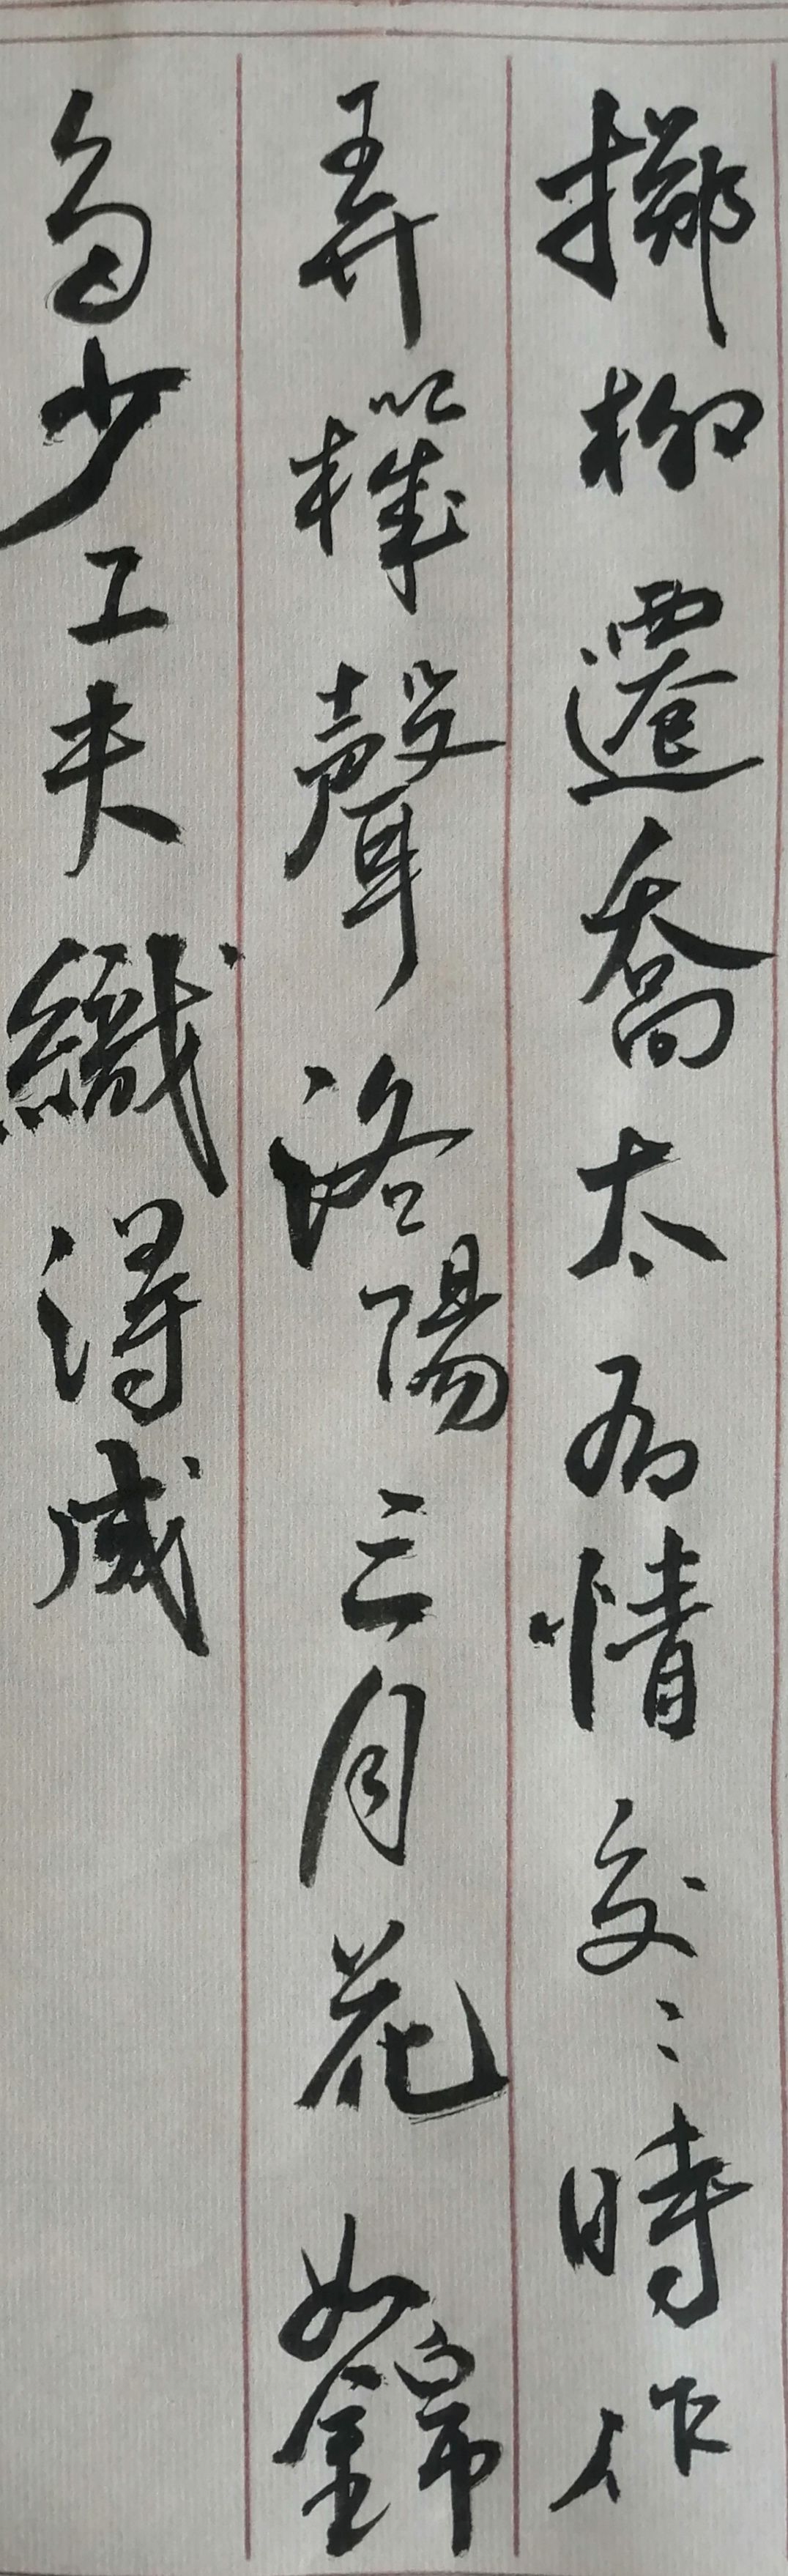 擲柳遷喬太有情交〻時作
弄機聲洛陽三月花如錦
多少工夫織得成